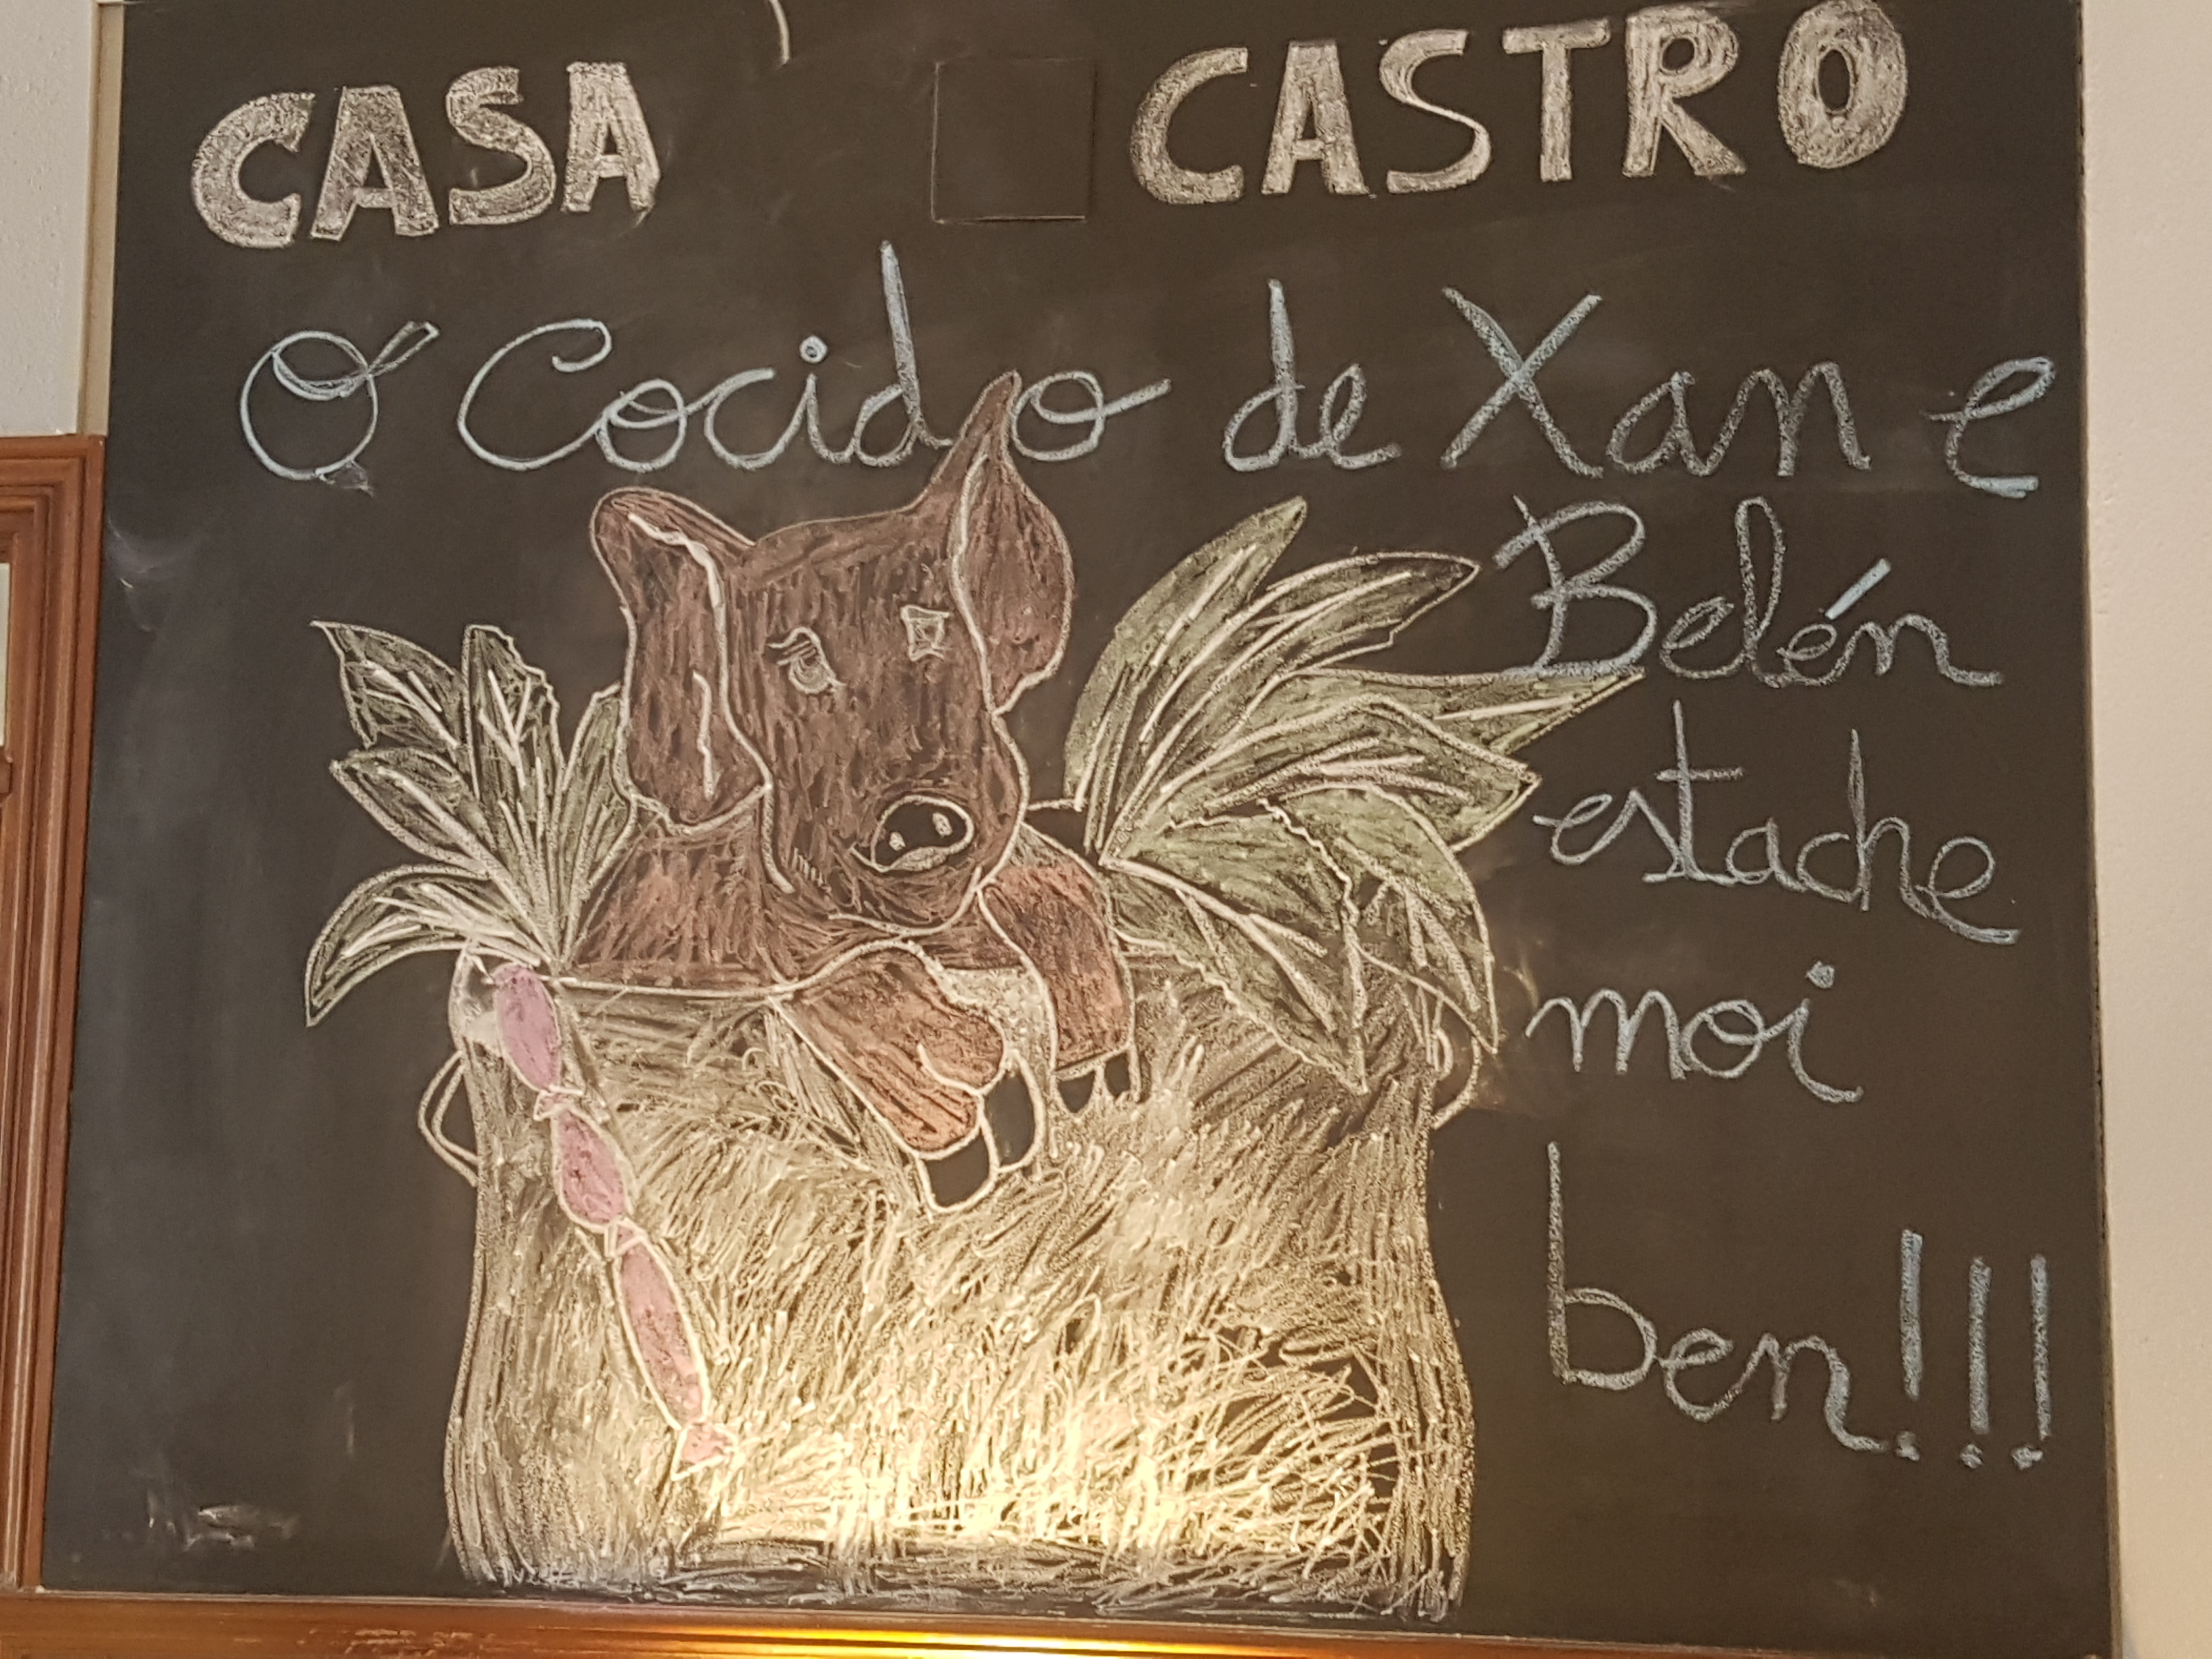 CASA CASTRO
O Cocido de Xan e
Belén
estache
moi
ben!!!